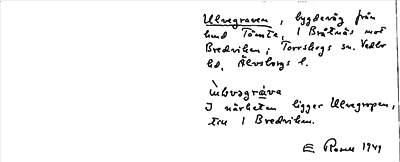 Ulvegraven, bygdeväg från
lund Tomte, 1 Bråtnäs mot
Bredviken; Torrskogs sn. Vedbo
hd, Älvsborgs l.
ùlvəgràva
I närheten ligger Ulvegropen,
till 1 Bredviken.
E Rosell 1949